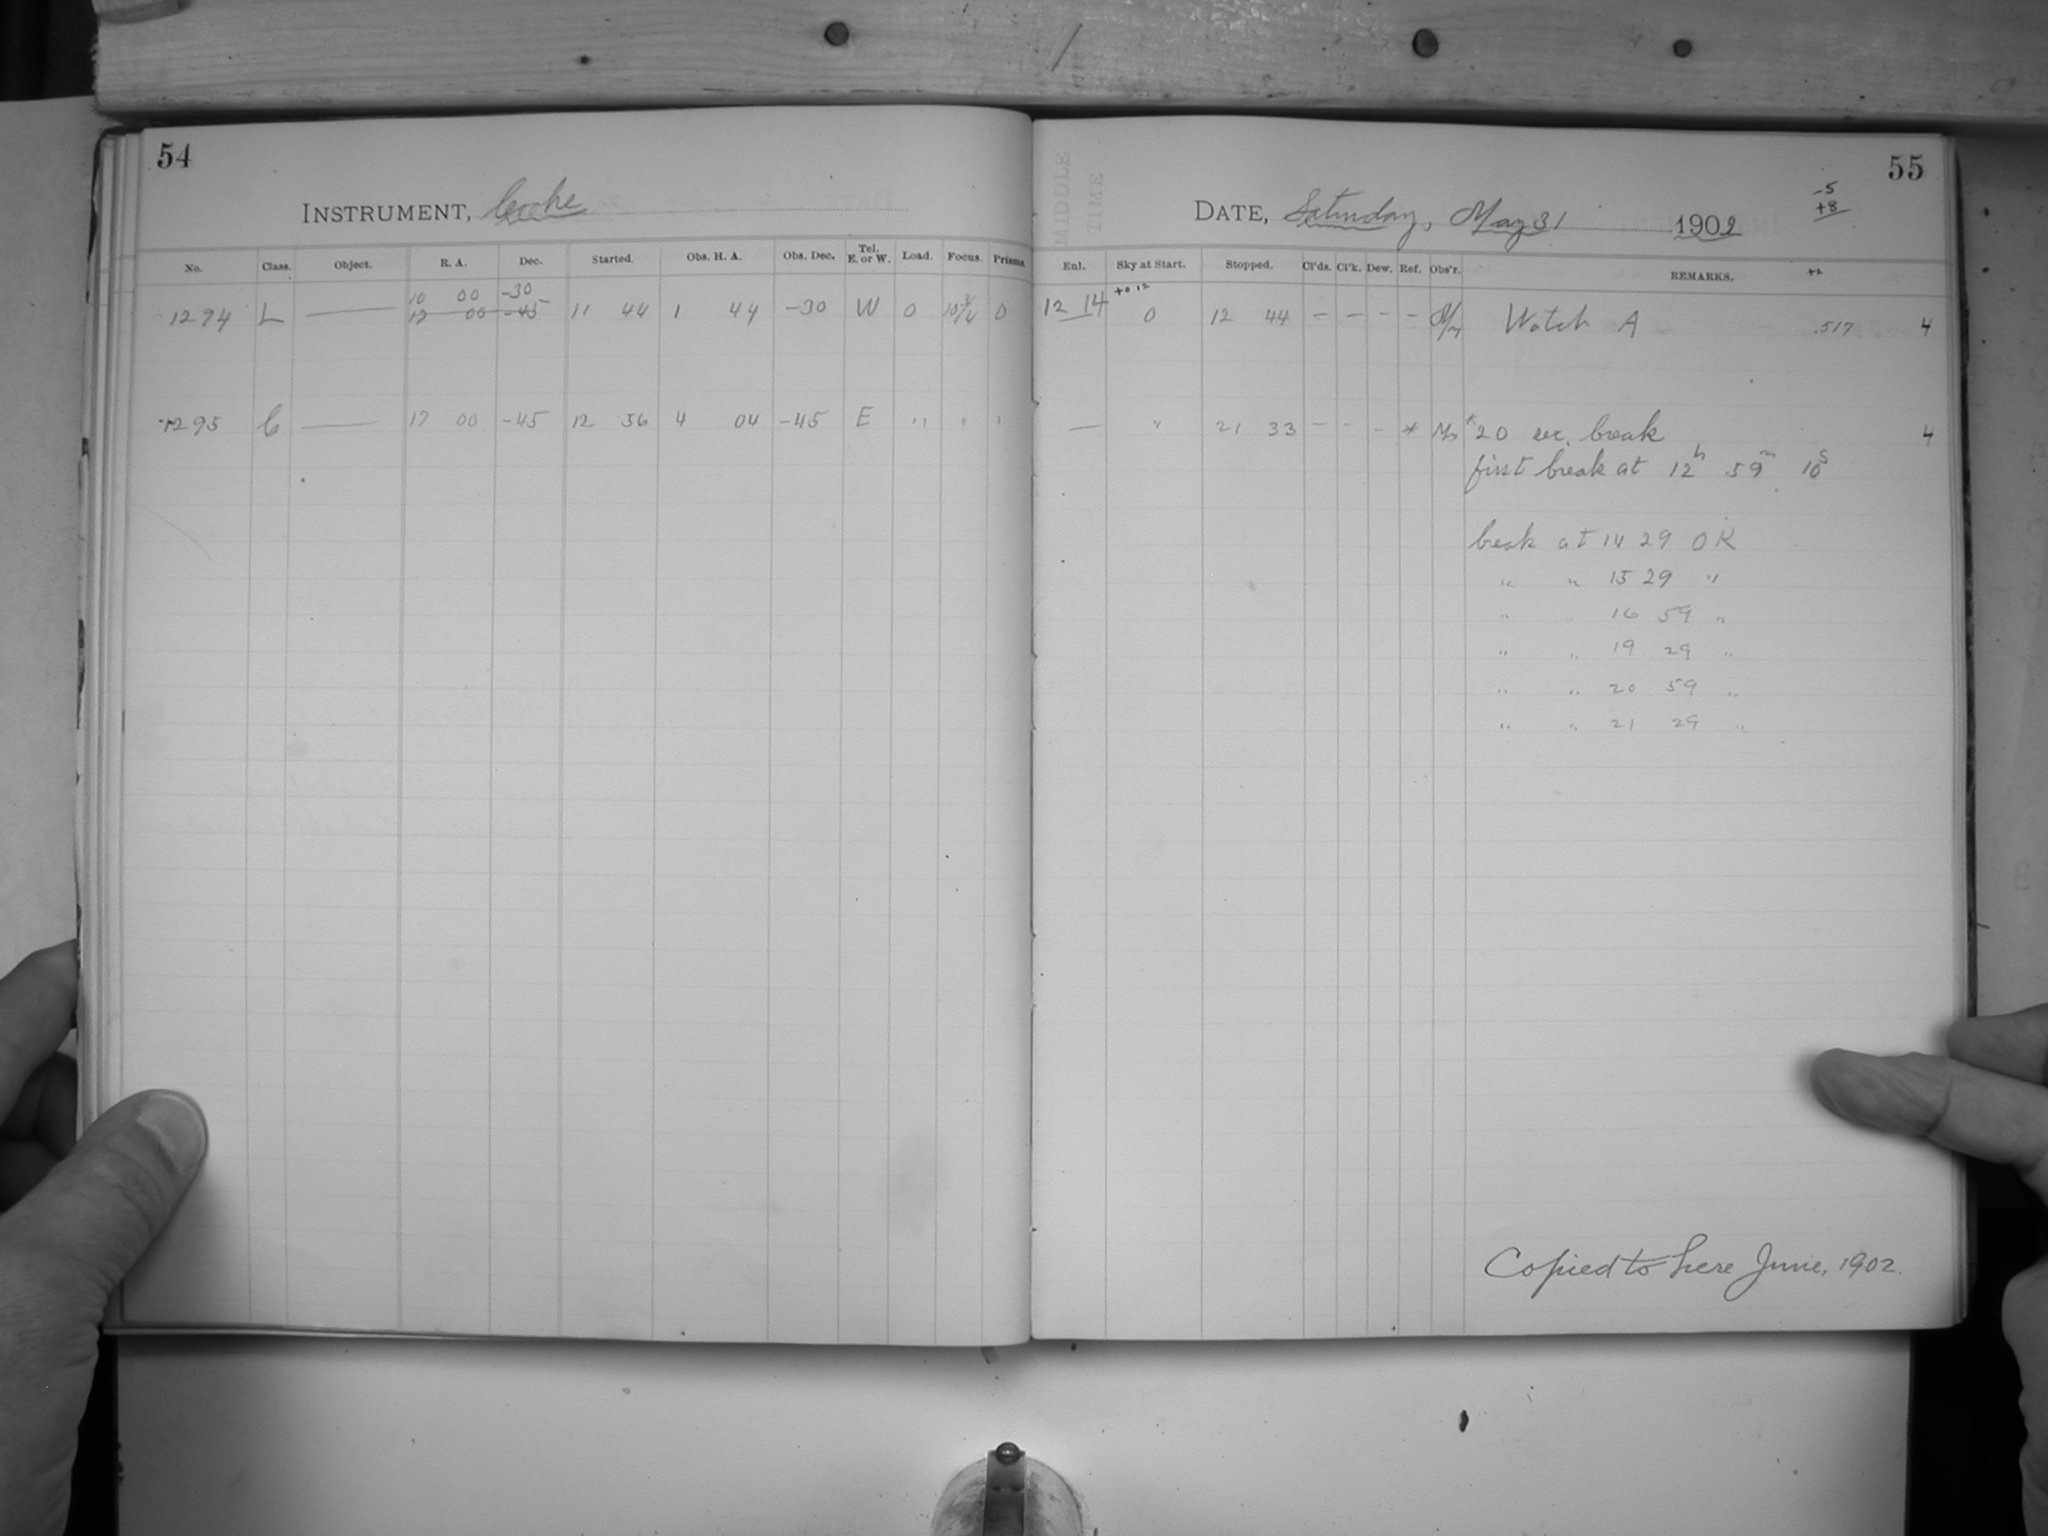 54
INSTRUMENT, Cooke
No. Class. Object. R. A. Dec. Started. Obs. H. A. Obs. Dec. Tel. E. or W. Load. Focus. Prisms.
10 00 -30
1294 L — 12 00 -45 11 44 1 44 -30 W 0 10 3/4 0
1295 C — 17 00 -45 12 56 4 04 -45 E " " "
MIDDLE
TIME
55
-5
+8
DATE, Saturday, May 31 1902
Enl. Sky at Start. Stopped. Cl'ds. Cl'k. Dew. Ref. Obs'r. REMARKS. +2
+0 12
12 14 0 12 44 – – – – Watch A .517 4
— " 21 33 – – – * *20 sec. break 4
first break at 12h 59m 10s
break at 14 29 OK
" " 15 29 "
" " 16 59 "
" " 19 29 "
" " 20 59 "
" " 21 29 "
Copied to here June, 1902.